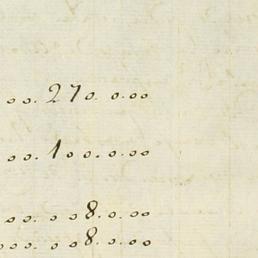 oo. 270. o.oo
oo. 100.o.oo
oo. o o8.o.oo
ooo. o o8.o.oo